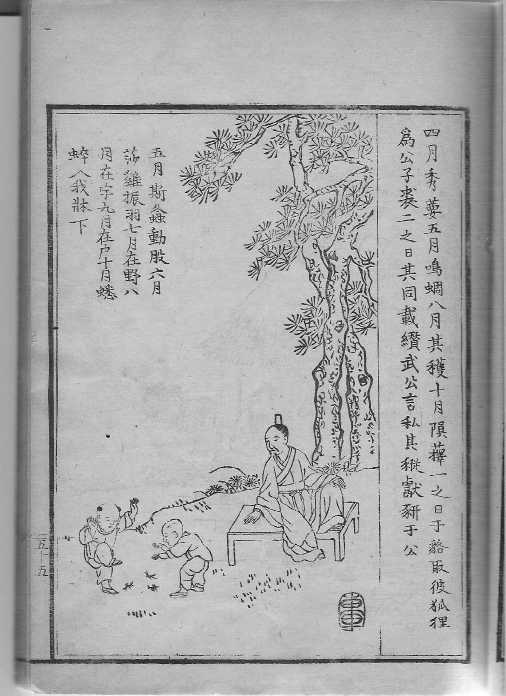 四月秀葽五月鳴蜩八月其穫十月隕蘀一之日于貉取彼狐狸
為公子裘二之日其同載纘武公言私其豵獻豜于公
五月斯螽動股六月
莎雞振羽七月在野八
月在宇九月在户十月蟋
蟀入我牀下